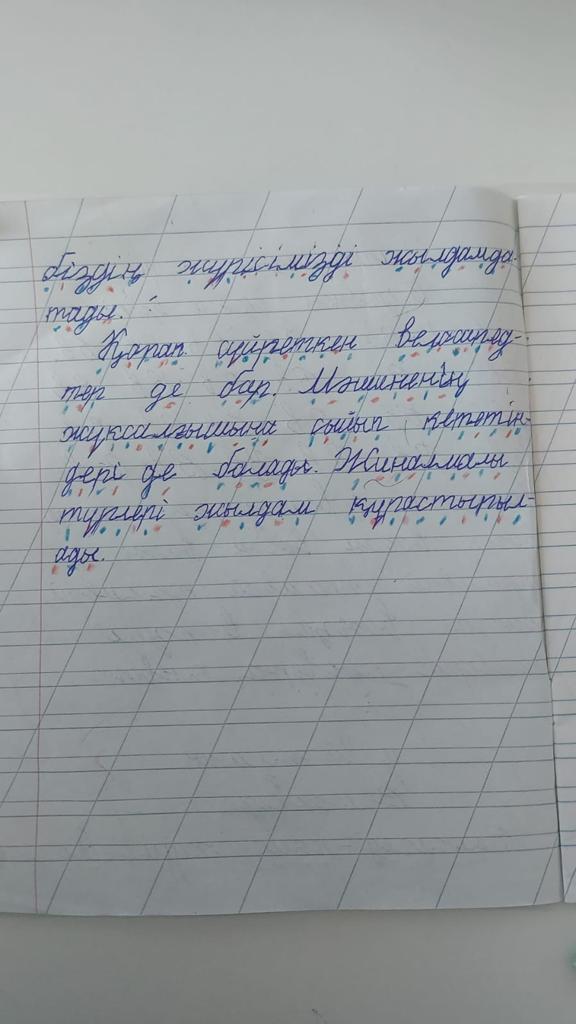 біздің жүрісімізді жылдамда-
тады.
Қарап сүйреткен велосипед-
тер де бар. Мәшиненің
жүксалғышына сыйып кететін-
дері де болады. Жиналмалы
түрлері жылдам құрастырыл-
ады.